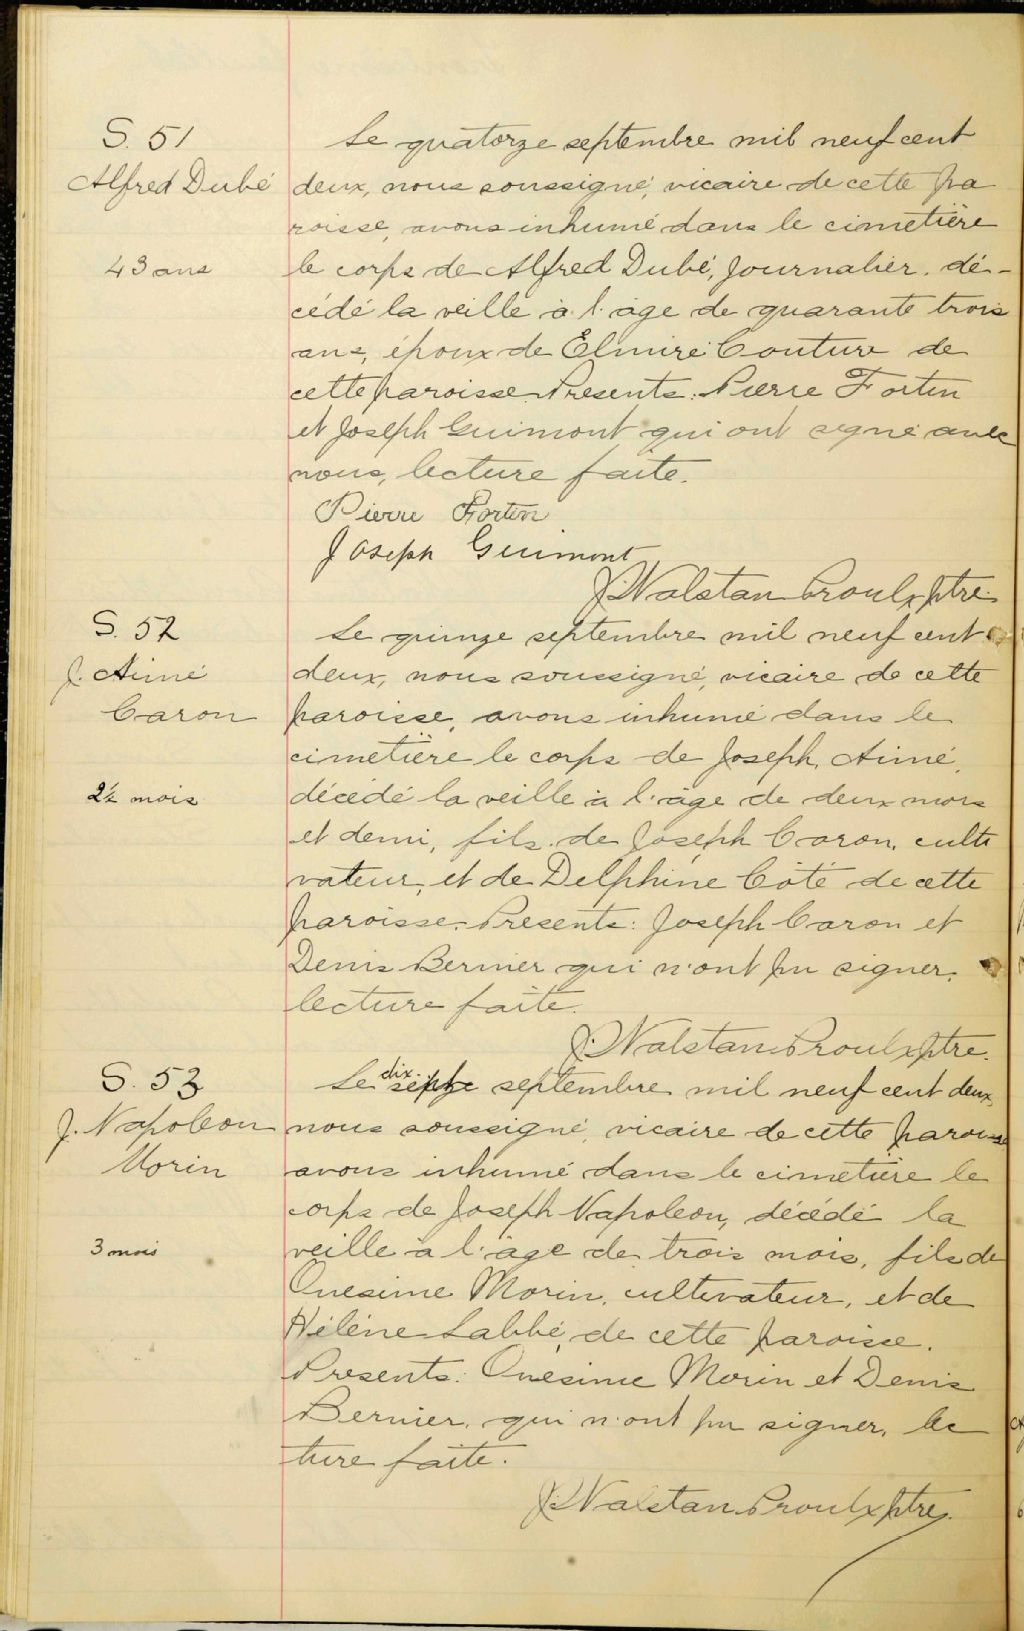 S. 51
Alfred Dubé
43 ans
Le quatorze septembre mil neuf cent
deux, nous soussigné, vicaire de cette pa
roisse, avons inhumé dans le cimetière
le corps de Alfred Dubé, journalier, dé-
cédé la veille à l'âge de quarante trois
ans, époux de Elmire Couture de
cette paroisse. Présents: Pierre Fortin
et Joseph Guimont qui ont signé avec
nous, lecture faite.
Pierre Fortin
Joseph Guimont
J. Walstan Proulx ptre.
S. 52
J. Aimé
Caron
2½ mois
Le quinze septembre mil neuf cent
deux, nous soussigné, vicaire de cette
paroisse, avons inhumé dans le
cimetière le corps de Joseph, Aimé,
décédé la veille à l'âge de deux mois
et demi, fils de Joseph Caron, culti
vateur, et de Delphine Côté de cette
paroisse. Présents: Joseph Caron et
Denis Bernier qui n'ont pu signer.
lecture faite.
J. Walstan Proulx ptre.
S. 53
J. Napoleon
Morin
3 mois
Le dix-sept septembre mil neuf cent deux,
nous soussigné, vicaire de cette paroisse
avons inhumé dans le cimetière le
corps de Joseph Napoleon, décédé la
veille à l'âge de trois mois, fils de
Onesime Morin, cultivateur, et de
Hélène Labbé, de cette paroisse.
Présents: Onesime Morin et Denis
Bernier, qui n'ont pu signer, lec
ture faite.
J. Walstan Proulx ptre.